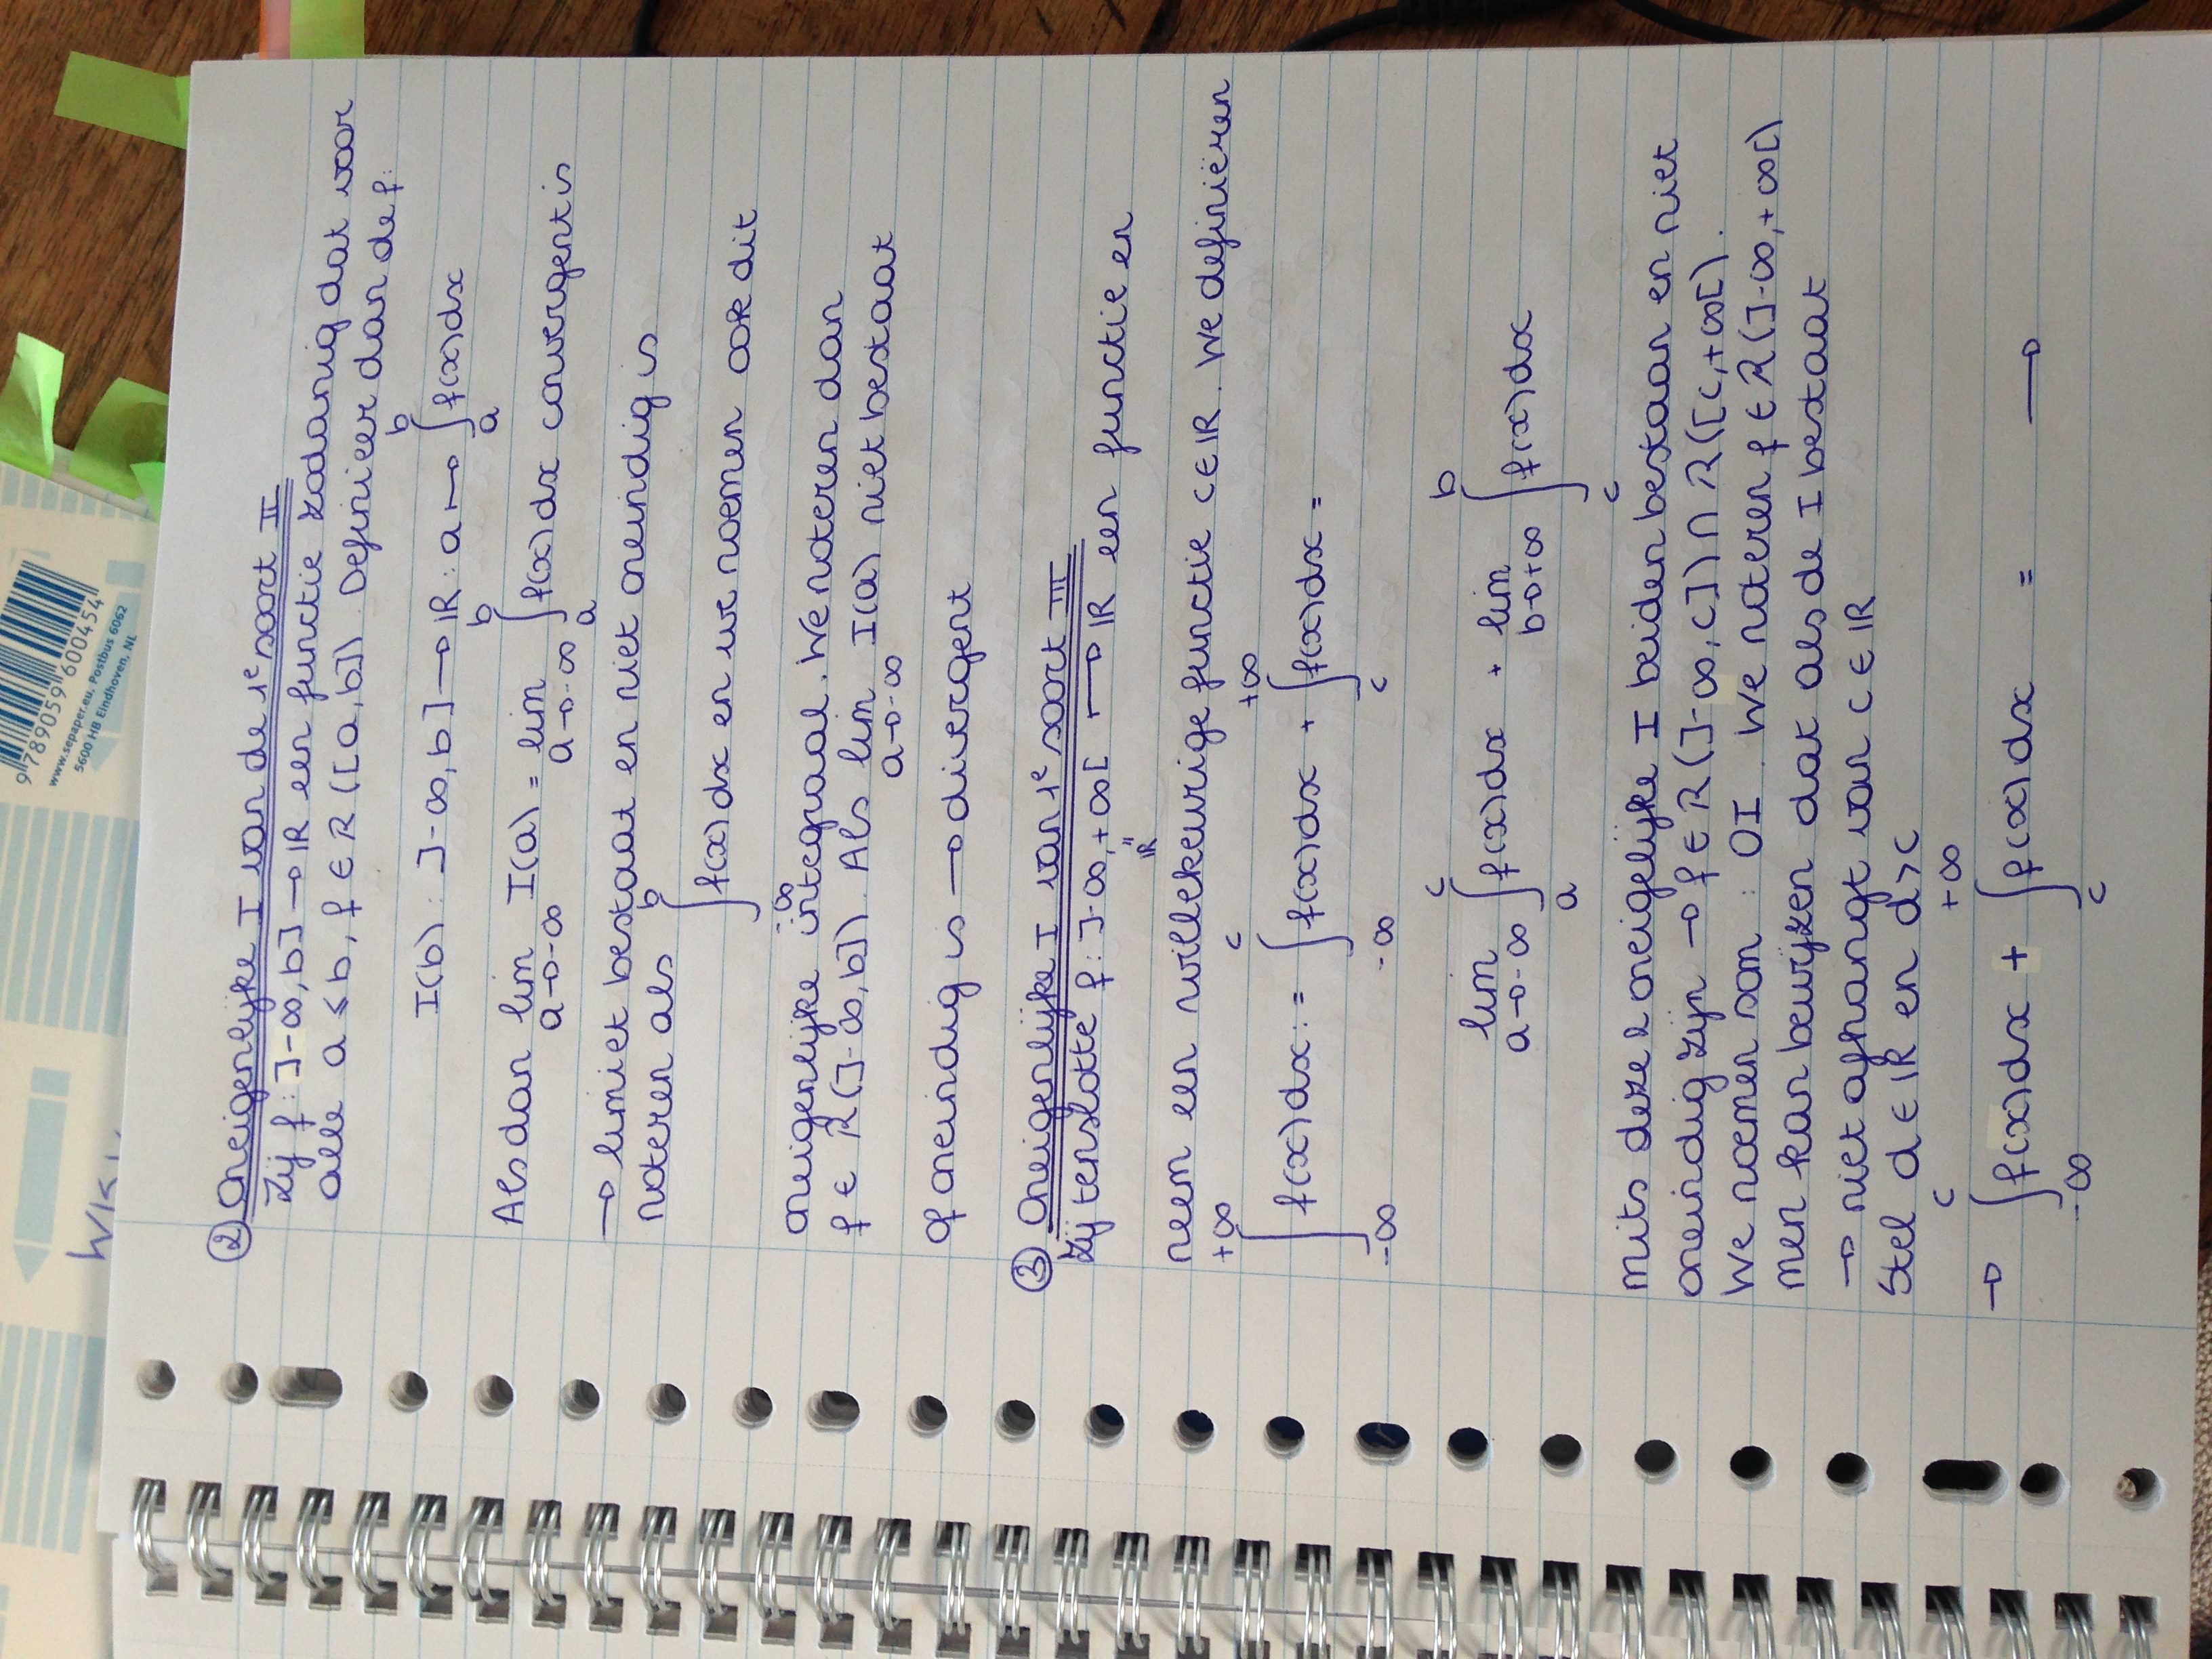 9 789059 600454
www.sepaper.eu, Postbus 6062
5600 HB Eindhoven, NL
② Oneigenlijke I van de 1e soort II
Zij f: ]-∞, b] → ℝ een functie zodanig dat voor
alle a ≤ b, f ∈ R([a,b]). Definieer dan de f:
I(b) : ]-∞, b] → ℝ : a ↦ ∫_a^b f(x)dx
Als dan lim_{a→-∞} I(a) = lim_{a→-∞} ∫_a^b f(x)dx convergent is
→ limiet bestaat en niet oneindig is
noteren als ∫_{-∞}^b f(x)dx en we noemen ook dit
oneigenlijke integraal. We noteren dan
f ∈ R(]-∞, b]). Als lim_{a→-∞} I(a) niet bestaat
of oneindig is → divergent
③ Oneigenlijke I van 1e soort III
Zij tenslotte f: ]-∞, +∞[ ↦ ℝ een functie en
"
ℝ
neem een willekeurige functie c ∈ ℝ. We definiëren
∫_{-∞}^{+∞} f(x)dx := ∫_{-∞}^c f(x)dx + ∫_c^{+∞} f(x)dx =
lim_{a→-∞} ∫_a^c f(x)dx + lim_{b→+∞} ∫_c^b f(x)dx
mits deze 2 oneigelijke I beiden bestaan en niet
oneindig zijn → f ∈ R(]-∞, c]) ∩ R([c, +∞[).
We noemen som : OI. We noteren f ∈ R(]-∞, +∞[)
men kan bewijzen dat als de I bestaat
→ niet afhangt van c ∈ ℝ
Stel d ∈ ℝ en d > c
→ ∫_{-∞}^c f(x)dx + ∫_c^{+∞} f(x)dx = →